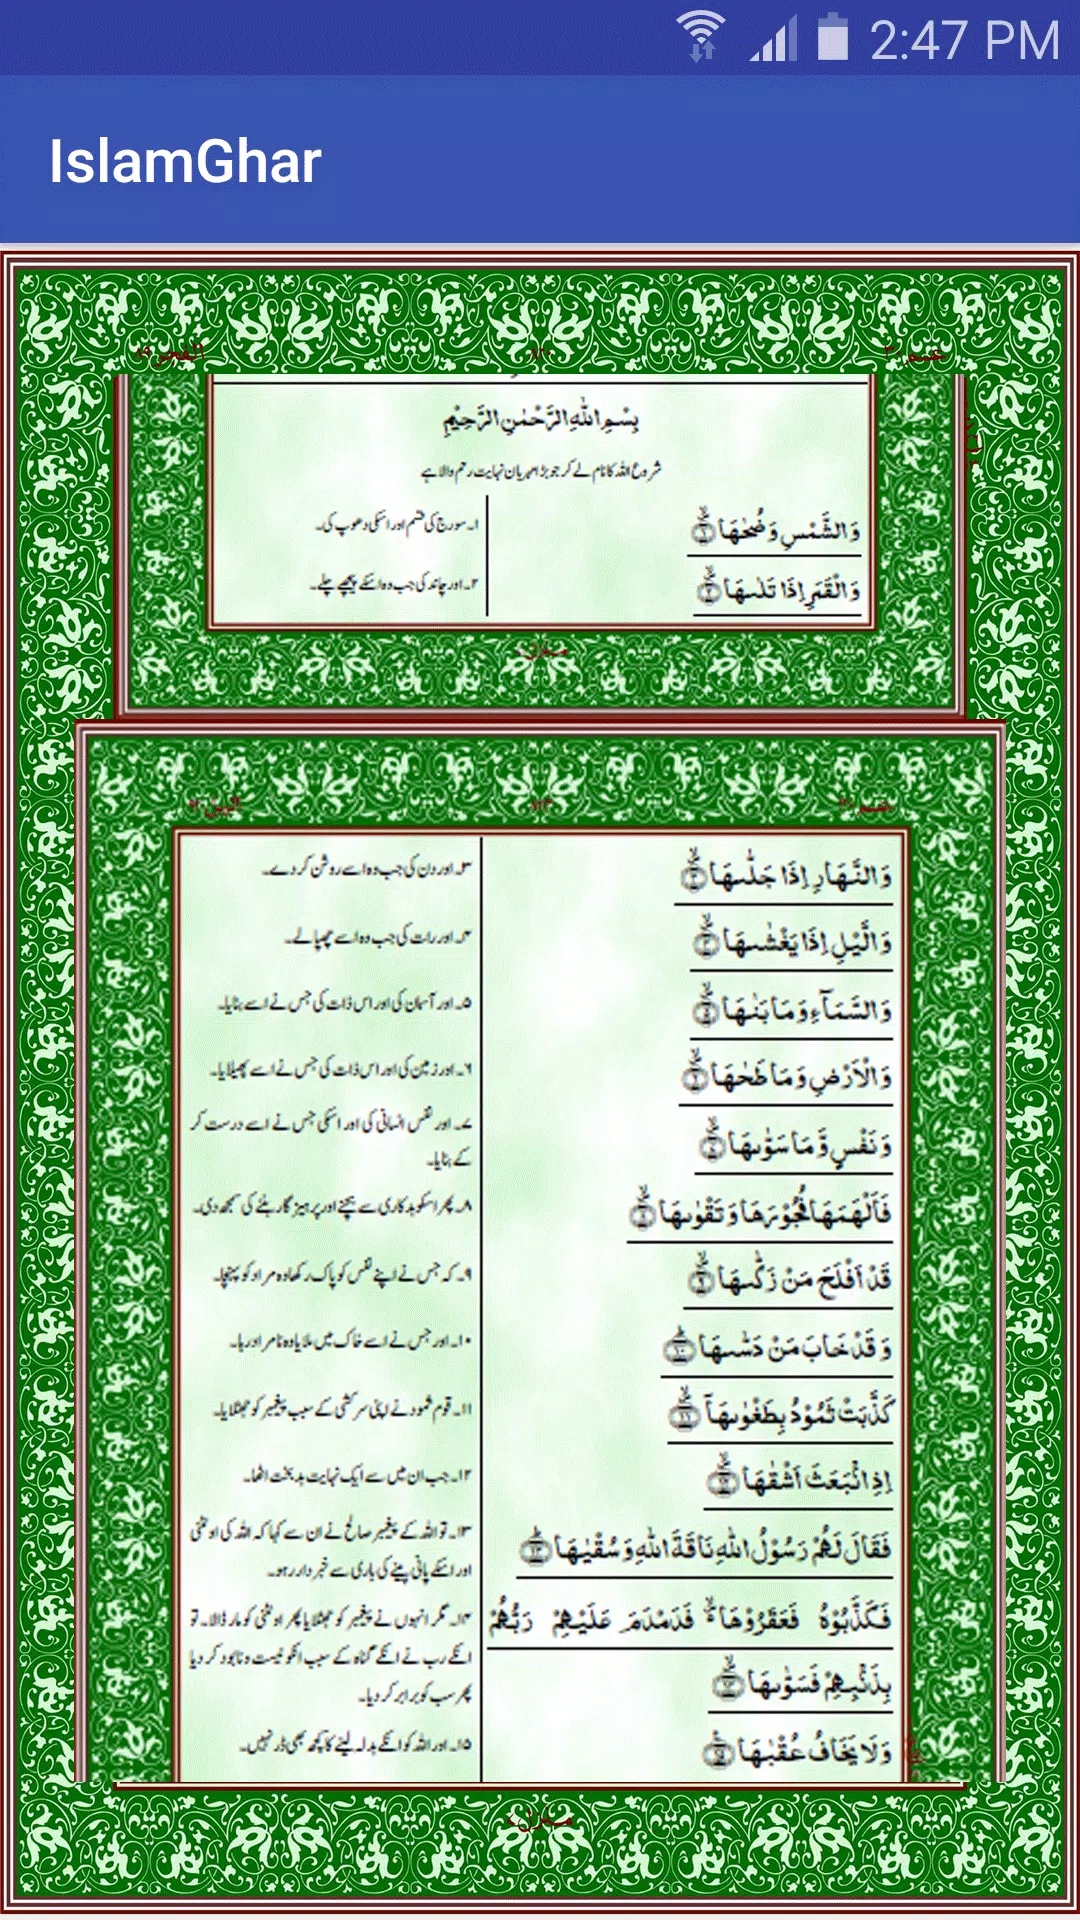 2:47 PM
IslamGhar
الفجر ۸۹
عمّ ۳۰
بِسْمِ اللّٰهِ الرَّحْمٰنِ الرَّحِيْمِ
شروع اللہ کا نام لے کر جو بڑا مہربان نہایت رحم والا ہے
وَالشَّمْسِ وَضُحٰىهَا ۙ﴿۱﴾
۱۔ سورج کی قسم اور اسکی دھوپ کی۔
وَالْقَمَرِ اِذَا تَلٰىهَا ۙ﴿۲﴾
۲۔ اور چاند کی جب وہ اسکے پیچھے چلے۔
منزل ۷
عمّ ۳۰
وَالنَّهَارِ اِذَا جَلّٰىهَا ۙ﴿۳﴾
۳۔ اور دن کی جب وہ اسے روشن کر دے۔
وَالَّيْلِ اِذَا يَغْشٰىهَا ۙ﴿۴﴾
۴۔ اور رات کی جب وہ اسے چھپا لے۔
وَالسَّمَآءِ وَمَا بَنٰىهَا ۙ﴿۵﴾
۵۔ اور آسمان کی اور اس ذات کی جس نے اسے بنایا۔
وَالْاَرْضِ وَمَا طَحٰىهَا ۙ﴿۶﴾
۶۔ اور زمین کی اور اس ذات کی جس نے اسے پھیلایا۔
وَنَفْسٍ وَّمَا سَوّٰىهَا ۙ﴿۷﴾
۷۔ اور نفس انسانی کی اور اسکی جس نے اسے درست کر
کے بنایا۔
فَاَلْهَمَهَا فُجُوْرَهَا وَتَقْوٰىهَا ۙ﴿۸﴾
۸۔ پھر اسکو بدکاری سے بچنے اور پرہیزگار بننے کی سمجھ دی۔
قَدْ اَفْلَحَ مَنْ زَكّٰىهَا ۙ﴿۹﴾
۹۔ کہ جس نے اپنے نفس کو پاک رکھا وہ مراد کو پہنچا۔
وَقَدْ خَابَ مَنْ دَسّٰىهَا ؕ﴿۱۰﴾
۱۰۔ اور جس نے اسے خاک میں ملایا وہ نامراد رہا۔
كَذَّبَتْ ثَمُوْدُ بِطَغْوٰىهَاۤ ۙ﴿۱۱﴾
۱۱۔ قوم ثمود نے اپنی سرکشی کے سبب پیغمبر کو جھٹلایا۔
اِذِ انْۢبَعَثَ اَشْقٰىهَا ۙ﴿۱۲﴾
۱۲۔ جب ان میں سے ایک نہایت بدبخت اٹھا۔
فَقَالَ لَهُمْ رَسُوْلُ اللّٰهِ نَاقَةَ اللّٰهِ وَسُقْيٰهَا ؕ﴿۱۳﴾
۱۳۔ تو اللہ کے پیغمبر صالح نے ان سے کہا کہ اللہ کی اونٹنی
اور اسکے پانی پینے کی باری سے خبردار رہو۔
فَكَذَّبُوْهُ فَعَقَرُوْهَا ۙ فَدَمْدَمَ عَلَيْهِمْ رَبُّهُمْ
بِذَنْۢبِهِمْ فَسَوّٰىهَا ۙ﴿۱۴﴾
۱۴۔ مگر انہوں نے پیغمبر کو جھٹلایا پھر اونٹنی کو مار ڈالا۔ تو
انکے رب نے انکے گناہ کے سبب انکو نیست و نابود کر دیا
پھر سب کو برابر کر دیا۔
وَلَا يَخَافُ عُقْبٰهَا ﴿۱۵﴾
۱۵۔ اور اللہ کو انکے بدلہ لینے کا کچھ بھی ڈر نہیں۔
منزل ۷